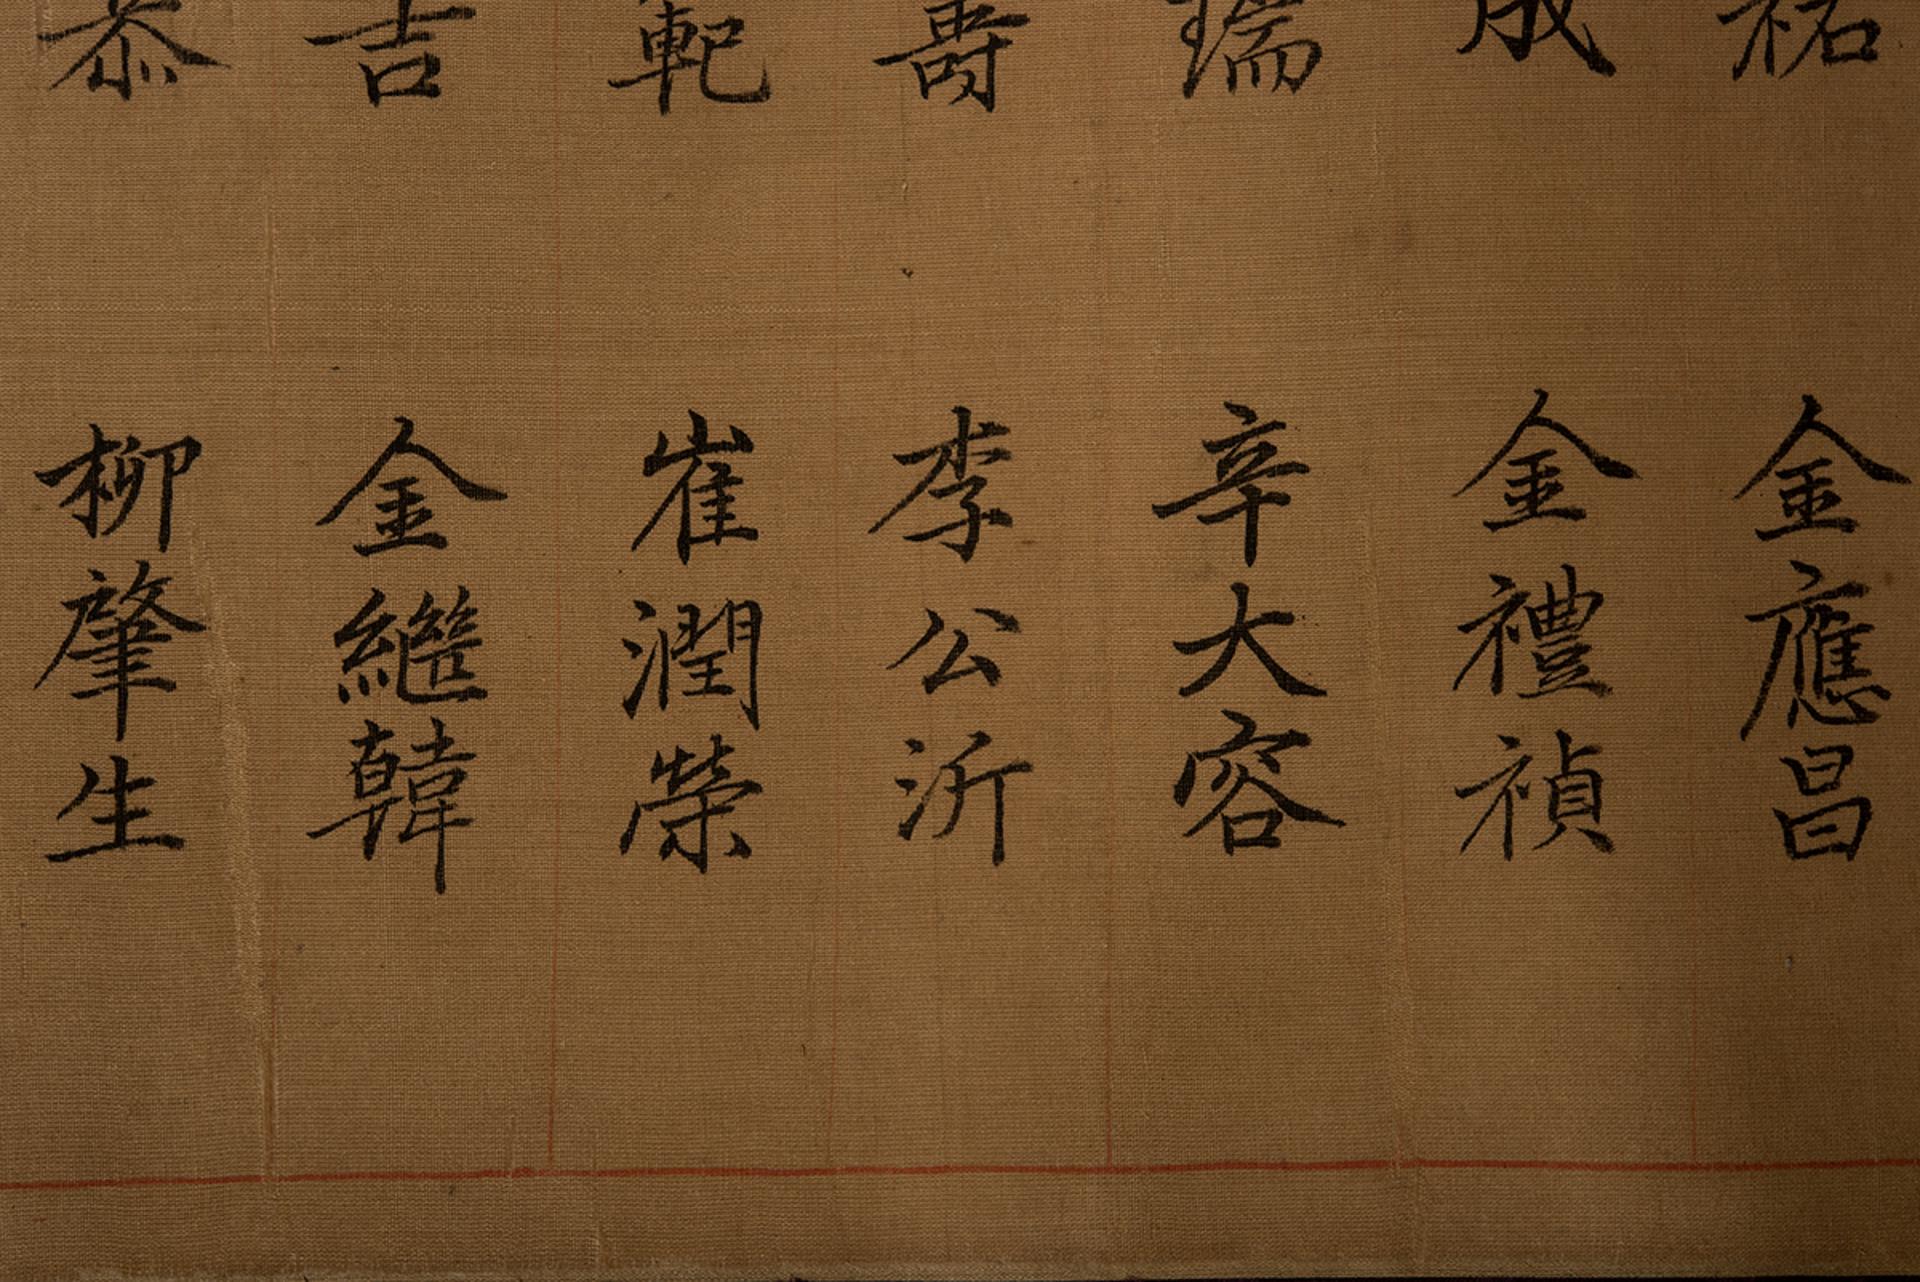 祐 金應昌
成 金禮禎
瑞 辛大容
壽 李公沂
範 崔潤榮
吉 金繼韓
恭 柳肇生